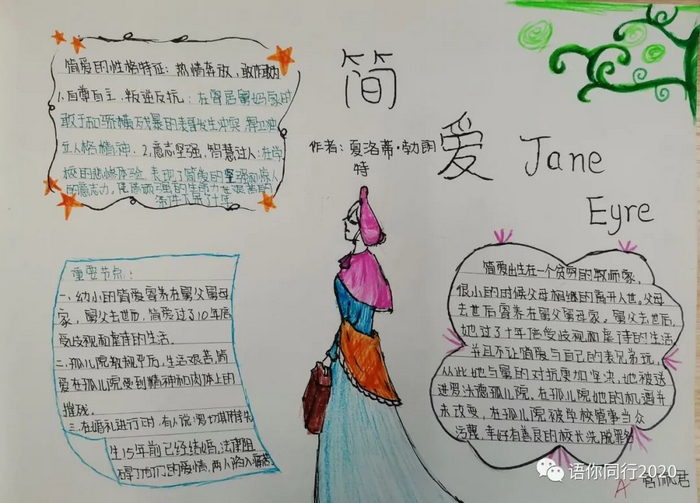 简爱
Jane
Eyre
作者：夏洛蒂·勃朗
特
简爱的性格特征：热情奔放，敢作敢为
1.自尊自主，叛逆反抗：在寄居舅妈家时
敢于和骄横残暴的表哥发生冲突
立人格精神。2.意志坚强，智慧过人：在学
校的悲惨体验，表现了简爱的坚强和惊人
的意志力，
重要节点：
一.幼小的简爱寄养在舅父舅母
家，舅父去世后，简爱过了10年倍
受歧视和虐待的生活。
二.孤儿院教规严厉，生活艰苦，简
爱在孤儿院受到精神和肉体上的
摧残。
三.在婚礼进行时，有人说：罗切斯特先
生15年前已经结婚，法律阻
碍了他们的爱情，两人陷入
简爱出生在一个贫穷的教师家，
很小的时候父母相继的离开人世。父母
去世后寄养在舅父舅母家，舅父去世后，
她过了十年倍受歧视和虐待的生活
并且不让简爱与自己的表兄弟玩，
从此她与舅的对抗更加坚决，她被送
进罗沃德孤儿院，在孤儿院她的机遇并
未改变，在孤儿院被学校管事当众
污蔑，幸好有善良的校长洗脱罪名
语你同行2020